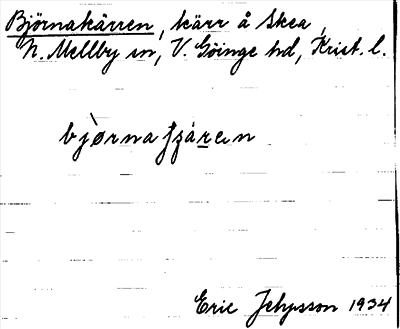 Björnakärren, kärr å Skea,
N. Mellby sn, V. Göinge hd, Krist. l.
Eric Jepsson 1934